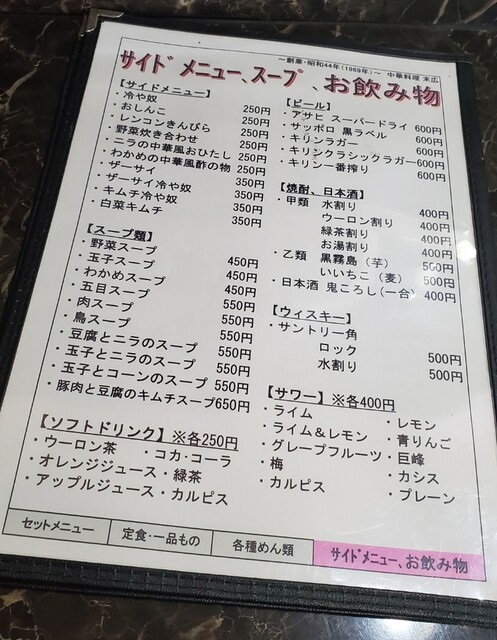 ～創業・昭和44年(1969年)～ 中華料理 末広
サイドメニュー、スープ、お飲み物
【サイドメニュー】
・冷や奴 250円
・おしんこ 250円
・レンコンきんぴら 250円
・野菜炊き合わせ 250円
・ニラの中華風おひたし 250円
・わかめの中華風酢の物 250円
・ザーサイ 350円
・ザーサイ冷や奴 350円
・キムチ冷や奴 350円
・白菜キムチ 350円
【スープ類】
・野菜スープ 450円
・玉子スープ 450円
・わかめスープ 450円
・五目スープ 550円
・肉スープ 550円
・鳥スープ 550円
・豆腐とニラのスープ 550円
・玉子とニラのスープ 550円
・玉子とコーンのスープ 550円
・豚肉と豆腐のキムチスープ650円
【ソフトドリンク】※各250円
・ウーロン茶 ・コカ・コーラ
・オレンジジュース・緑茶
・アップルジュース・カルピス
【ビール】
・アサヒ スーパードライ 600円
・サッポロ 黒ラベル 600円
・キリンラガー 600円
・キリンクラシックラガー600円
・キリン一番搾り 600円
【焼酎、日本酒】
・甲類 水割り 400円
ウーロン割り 400円
緑茶割り 400円
お湯割り 400円
・乙類 黒霧島（芋） 500円
いいちこ（麦） 500円
・日本酒 鬼ころし(一合) 400円
【ウィスキー】
・サントリー角
ロック 500円
水割り 500円
【サワー】※各400円
・ライム ・レモン
・ライム＆レモン ・青りんご
・グレープフルーツ ・巨峰
・梅 ・カシス
・カルピス ・プレーン
セットメニュー 定食・一品もの 各種めん類 サイドメニュー、お飲み物